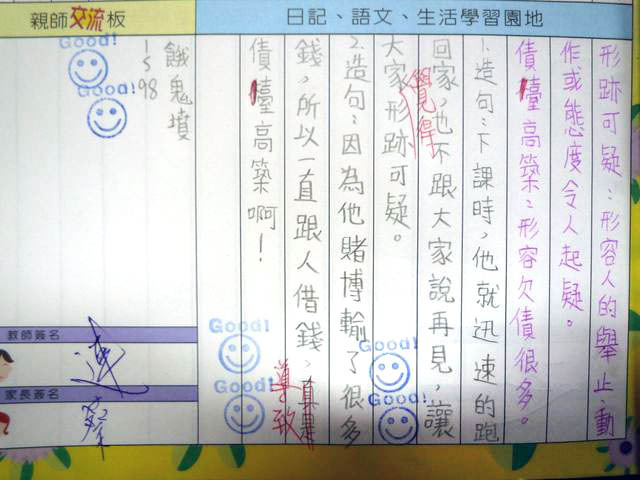 親師交流板
日記、語文、生活學習園地
形跡可疑：形容人的舉止、動
作或態度令人起疑。
債臺高築：形容欠債很多。
1.造句：下課時，他就迅速的跑
回家，也不跟大家說再見，讓
大家覺得形跡可疑。
2.造句：因為他賭博輸了很多
錢，所以一直跟人借錢，真是
導致
債臺高築啊！
餓鬼墳
1~98
Good!
Good!
Good!
Good!
Good!
Good!
教師簽名
家長簽名